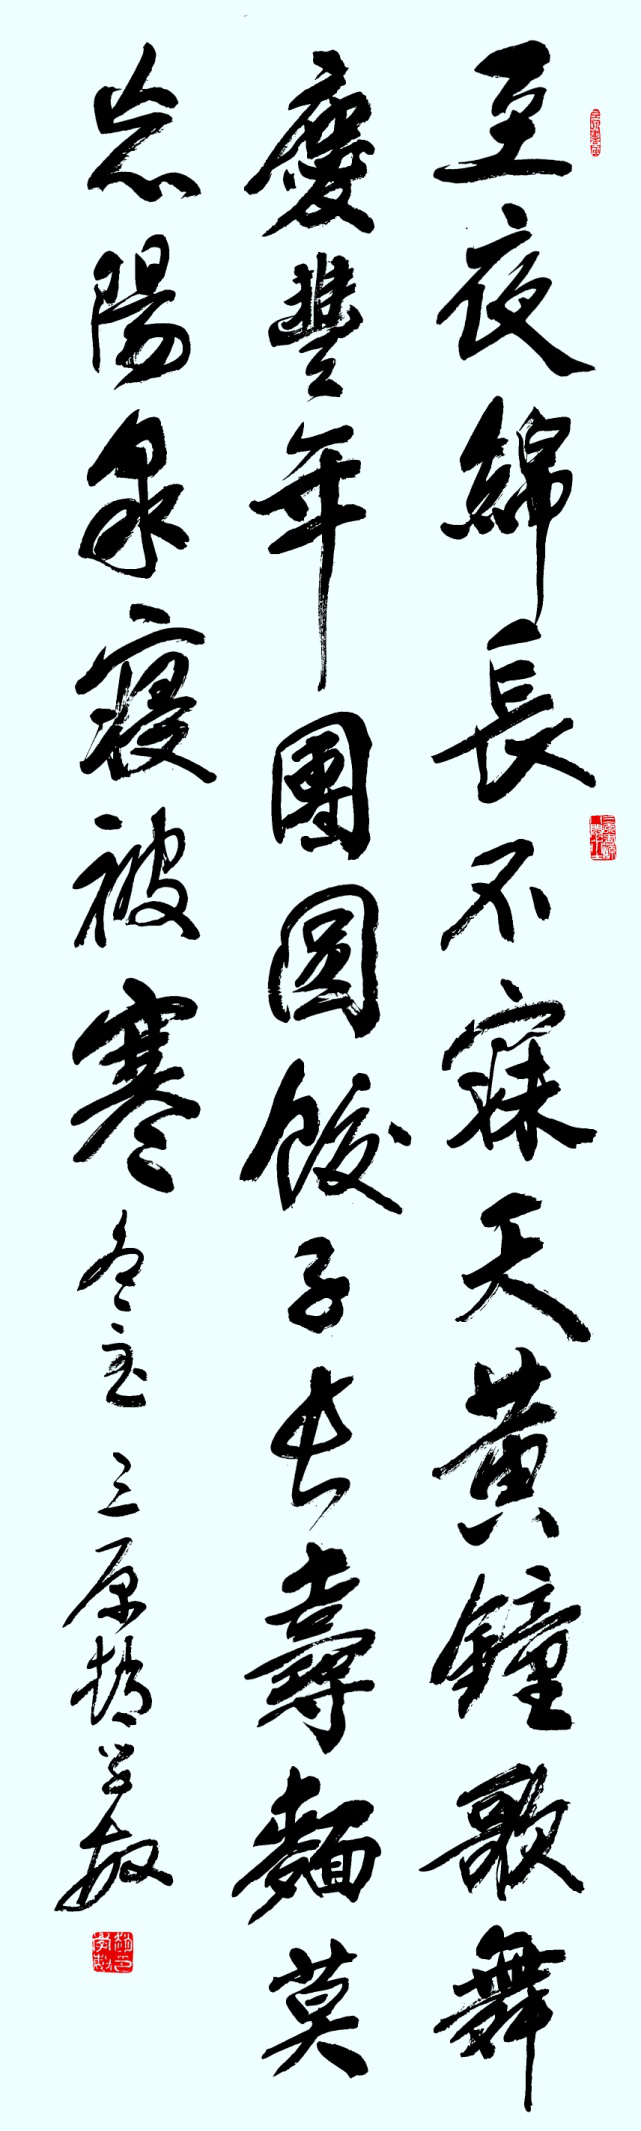 至夜綿長不寐天黃鐘歌舞
慶豐年團圓餃子長壽麵莫
忘陽泉寢被寒 冬至 三原趙学敏